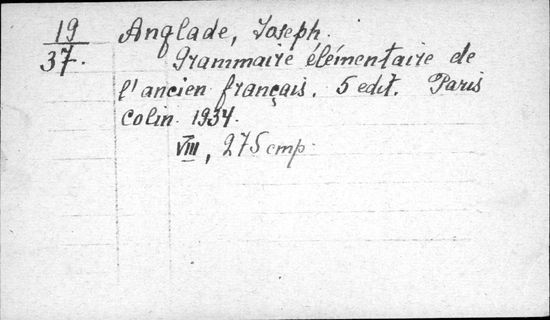 19 Anglade, Joseph.
37. Grammaire élémentaire de
l'ancien français. 5 edit. Paris
Colin 1934.
VIII, 275 cmp.